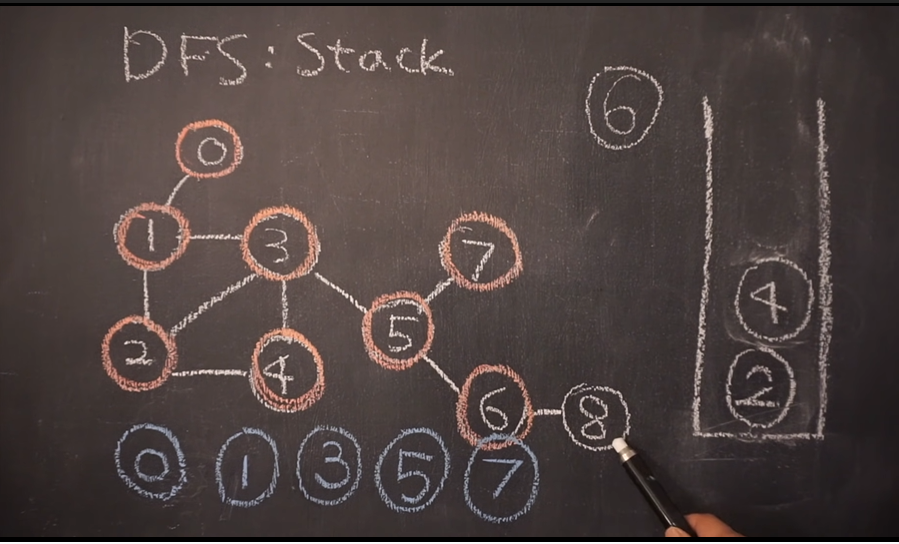 DFS: Stack
6
0
1 3 7
5
2 4
6 8
4
2
0 1 3 5 7